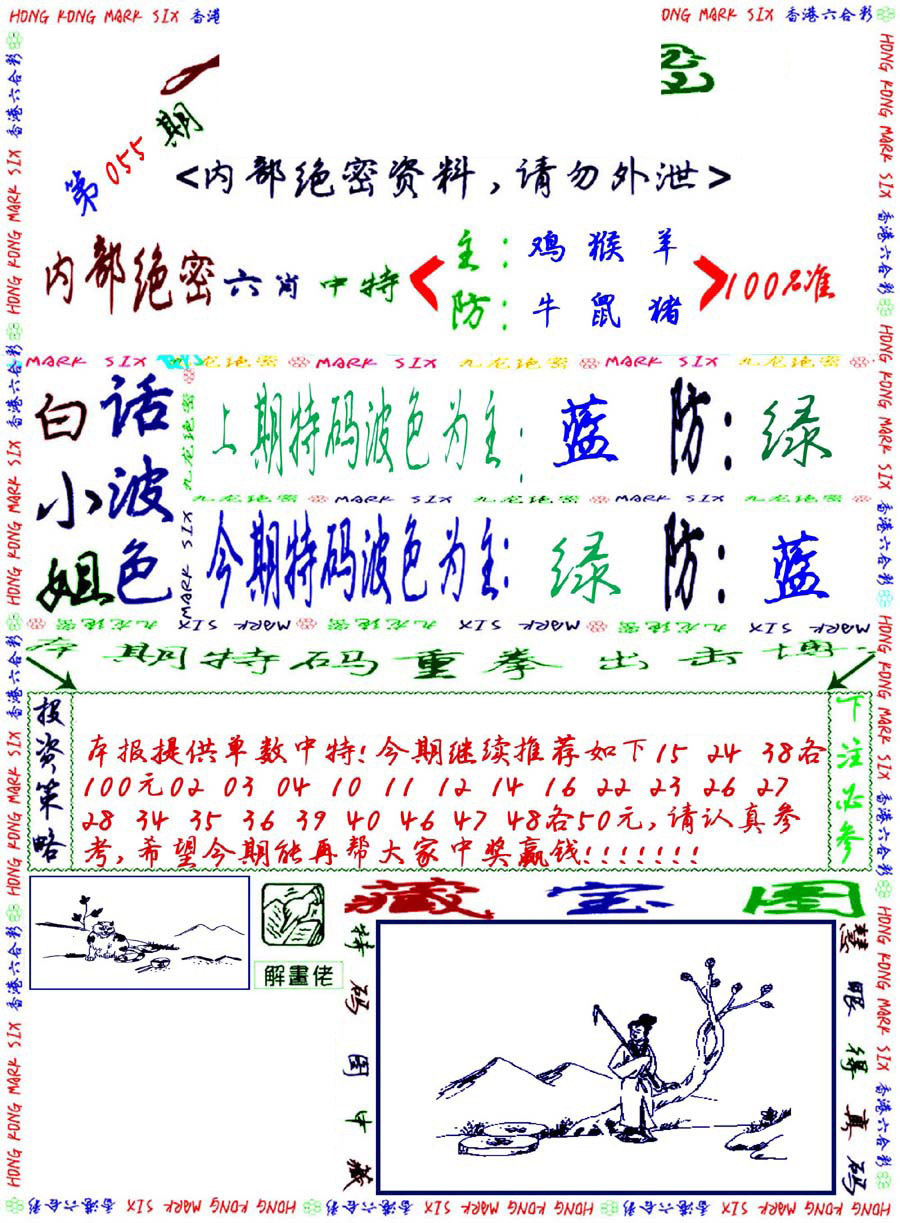 HONG KONG MARK SIX 香港
ONG MARK SIX 香港六合彩
第055期
<内部绝密资料,请勿外泄>
内部绝密六肖中特
主:鸡猴羊
防:牛鼠猪
100%准
MARK SIX 九龙绝密 MARK SIX 九龙绝密 MARK SIX 九龙绝密
白话小波姐色
上期特码波色为主:蓝 防:绿
九龙绝密 MARK SIX 九龙绝密 MARK SIX 九龙绝密
今期特码波色为主:绿 防:蓝
MARK SIX 九龙绝密 MARK SIX 九龙绝密 MARK SIX 九龙绝密
期特码重拳出击
投资策略
本报提供单数中特!今期继续推荐如下15 24 38各
100元02 03 04 10 11 12 14 16 22 23 26 27
28 34 35 36 39 40 46 47 48各50元,请认真参
考,希望今期能再帮大家中奖赢钱!!!!!!!
下注必参
解畫佬
藏宝图
特码图中藏
慧眼得真码
HONG KONG MARK SIX 香港六合彩